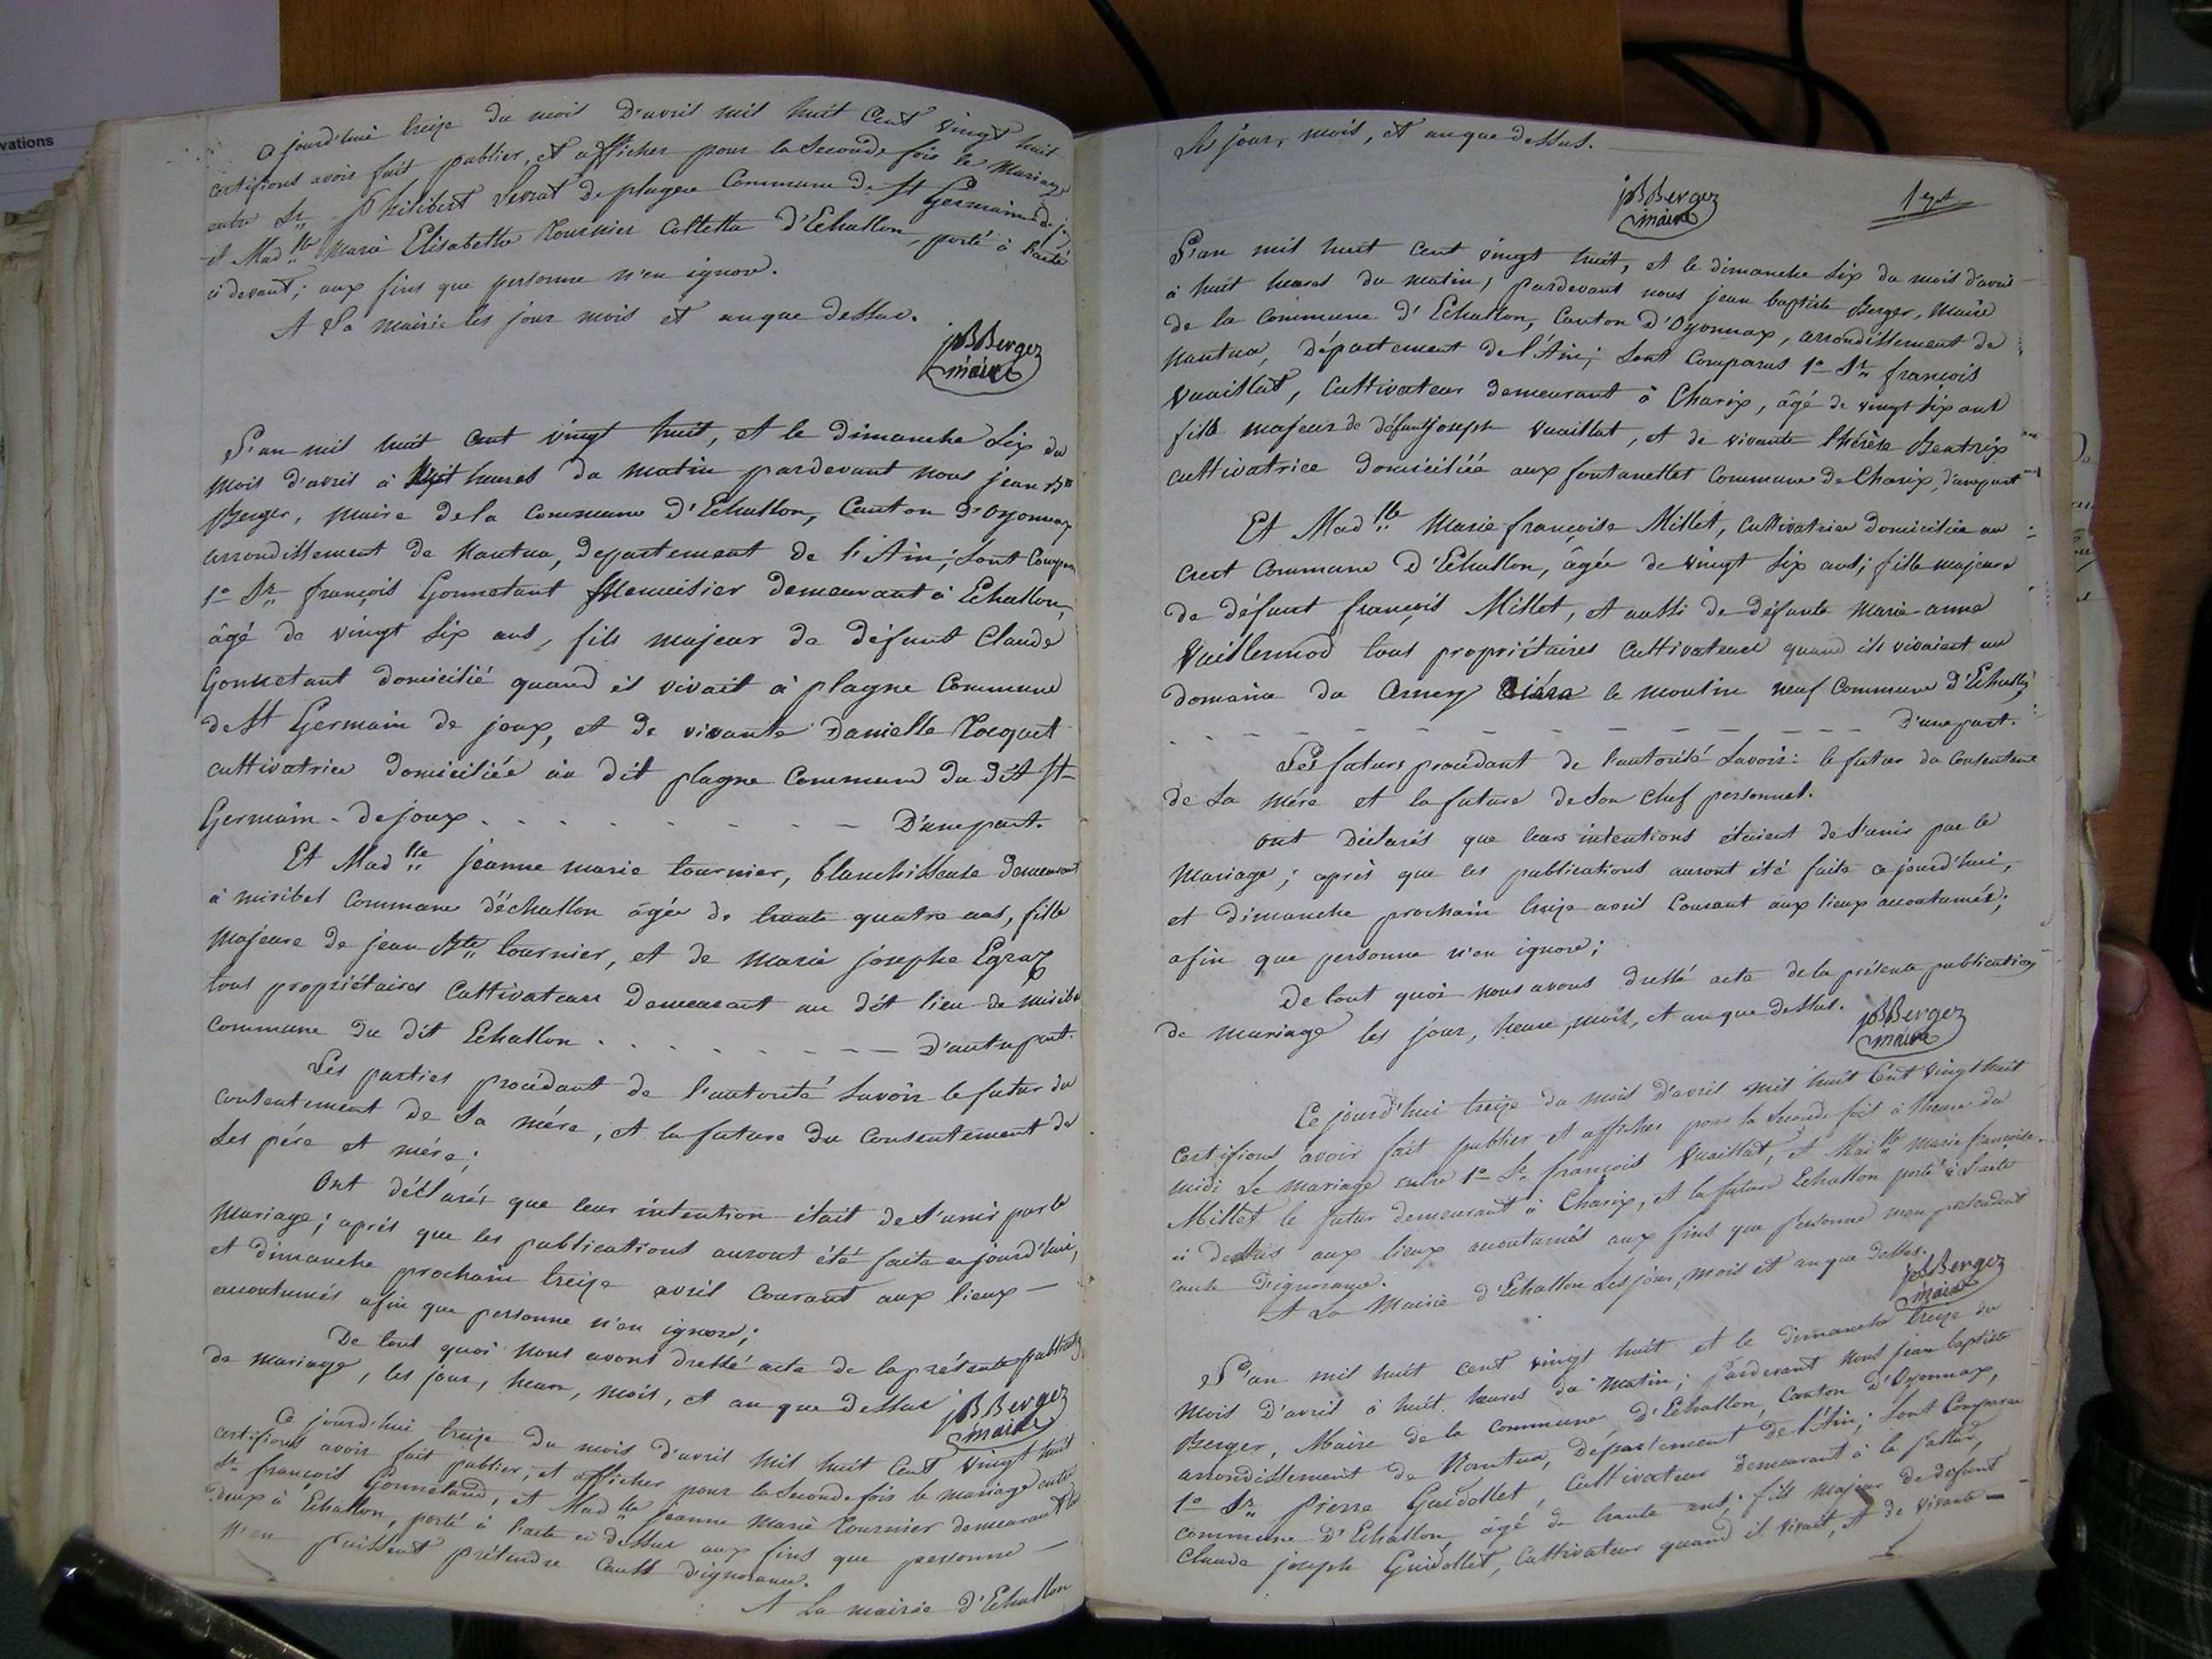 vations
Ce jourd'hui treize du mois d'avril mil huit Cent vingt huit
certifions avoir fait publier, et afficher pour la Seconde fois le Mariage
entre Sr. Philibert Serrat de plagne Commune de St Germain de j
et Mad.lle Marie Elisabethe Tournier Colletta d'Echallon, porté à l'acte
ci devant; aux fins que personne n'en ignore.
A La mairie les jour mois et an que dessus.
jBBerger
maire
L'an mil huit cent vingt huit, et le dimanche Six du
mois d'avril à huit heures du matin pardevant nous jean Bte
Berger, Maire dela Commune d'Echallon, Canton d'Oyonnax
arrondissement de Nantua, departement de l'Ain; Sont Compa
1o Sr. françois Gonnetant Menuisier demeurant à Echallon,
âgé de vingt Six ans, fils majeur de défunt Claude
Gonnetant domicilié quand il vivait à plagne Commune
de St Germain de joux, et de vivante Danielle Tocquet
cultivatrice domiciliée au dit plagne Commune du dit St
Germain - de joux - - - D'une part.
Et Mad.lle jeanne marie tournier, blanchisseuse demeurant
à miribel Commune d'échallon âgée de trente quatre ans, fille
Majeure de jean Bte tournier, et de Marie josephe Egraz
tous propriétaires Cultivateurs demeurant au dit lieu de miribe
Commune du dit Echallon - - - D'autre part.
Les parties procédant de l'autorité Savoir le futur du
consentement de Sa mére, et la future du Consentement de
Ses pére et mére;
Ont déclarés que leur intention était de S'unir par le
Mariage; aprés que les publications auront été faite ce jourd'hui,
et dimanche prochain treize avril Courant aux lieux -
accoutumés afin que personne n'en ignore;
De tout quoi nous avons dressé acte de la présente publicat
de mariage, les jour, heure, mois, et an que dessus
jBBerger
maire
Ce jourd'hui treize du mois d'avril Mil huit Cent Vingt huit
certifions avoir fait publier, et afficher pour la Seconde fois le mariage entre
Sr. françois Gonnetand, et Mad.lle jeanne Marie Tournier demeurant
deux à Echallon, porté à l'acte ci dessus aux fins que personne -
N'en puissent prétendre Cause d'ignorance.
A La mairie d'Echallon
les jour, mois, et an que dessus.
jBBerger
maire
L'an mil huit cent vingt huit, et le dimanche Six du mois d'avril
à huit heures du matin; pardevant nous jean baptiste Berger, Maire
de la Commune d'Echallon, Canton d'Oyonnax, arrondissement de
Nantua, Département de l'Ain; Sont Comparus 1o Sr. françois
Vuaillat, Cultivateur demeurant à Charix, âgé de vingt Six ans
fils majeur de défunt joseph Vuaillat, et de vivante thérèse Beatrix
cultivatrice domiciliée aux fontanettes Commune de Charix, d'une part
Et Mad.lle Marie françoise Millet, Cultivatrice domiciliée au
Cret Commune d'Echallon, âgée de vingt Six ans; fille majeure
de défunt françois Millet, et aussi de défunte Marie anne
Vuillermod tous propriétaires Cultivateurs quand ils vivaient au
domaine du Crney le moulin neuf Commune d'Echallon
- - - D'une part.
Les futurs procédant de l'autorité Savoir: le futur du Consentement
de Sa mére et la future de Son Chef personnel.
Ont Déclarés que leurs intentions étaient de S'unir par le
Mariage; aprés que les publications auront été faite ce jourd'hui,
et dimanche prochain treize avril Courant aux lieux accoutumés;
afin que personne n'en ignore;
De tout quoi nous avons dressé acte de la présente publication
de mariage les jour, heure, mois, et an que dessus.
jBBerger
maire
Ce jourd'hui treize du mois d'avril mil huit Cent Vingt huit
certifions avoir fait publier et afficher pour la Seconde fois à l'heure de
midi Le mariage entre 1o Sr. françois Vuaillat, et Mad.lle marie françoise
Millet le futur demeurant à Charix, et la future Echallon porté à l'acte
ci dessus aux lieux accoutumés aux fins que personne n'en prétendent
cause d'ignorance.
A La Mairie d'Echallon Les jour, mois et an que dessus.
jBBerger
maire
L'an mil huit cent vingt huit et le dimanche treize du
mois D'avril à huit heures du Matin; pardevant nous jean baptiste
Berger, Maire de la Commune d'Echallon, Canton d'Oyonnax,
arrondissement de Nantua, Département de l'Ain; Sont Comparus
1o Sr. Pierre Guidollet, Cultivateur demeurant à la
Commune d'Echallon, âgé de trente ans; fils Majeur de defunt
Claude joseph Guidollet, Cultivateur quand il vivait, et de vivante -